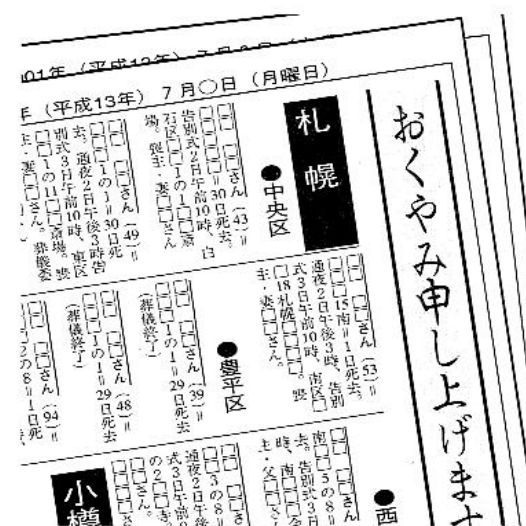 01年（平成13年）7月
年（平成13年）7月○日（月曜日）
おくやみ申し上げます
札幌
●中央区
□□ □□さん（43）＝
□□□□□＝30日死去。
告別式2日午前10時、白
石区□□1の1□□斎
場。喪主・妻□□さん
□□ □□さん（49）＝
□□□1の1＝30日死
去。通夜2日午後3時告
別式3日午前10時、東区
□□1の11□□斎場。喪
主・妻□□さん。葬儀委
□□ □□さん（53）＝
□□□15南＝1日死去。
通夜2日午後3時、告別
式3日午前10時、南区□
□18札幌□□□□。喪
主・妻□□さん。
●豊平区
□□ □□さん（39）＝
□□□1の1＝29日死去
（葬儀終了）
□□ □□さん（48）＝
□□□1の1＝29日死去
（葬儀終了）
□□ □□さん（94）＝
□□2の8＝1日死
●西
□□ □□さん
南□□5の8＝
去。告別式3
時、南□□
主・父□□
□□ □□さ
□□3の8＝
通夜2日午後
式3日午前
の2□□
□□さん。
小樽